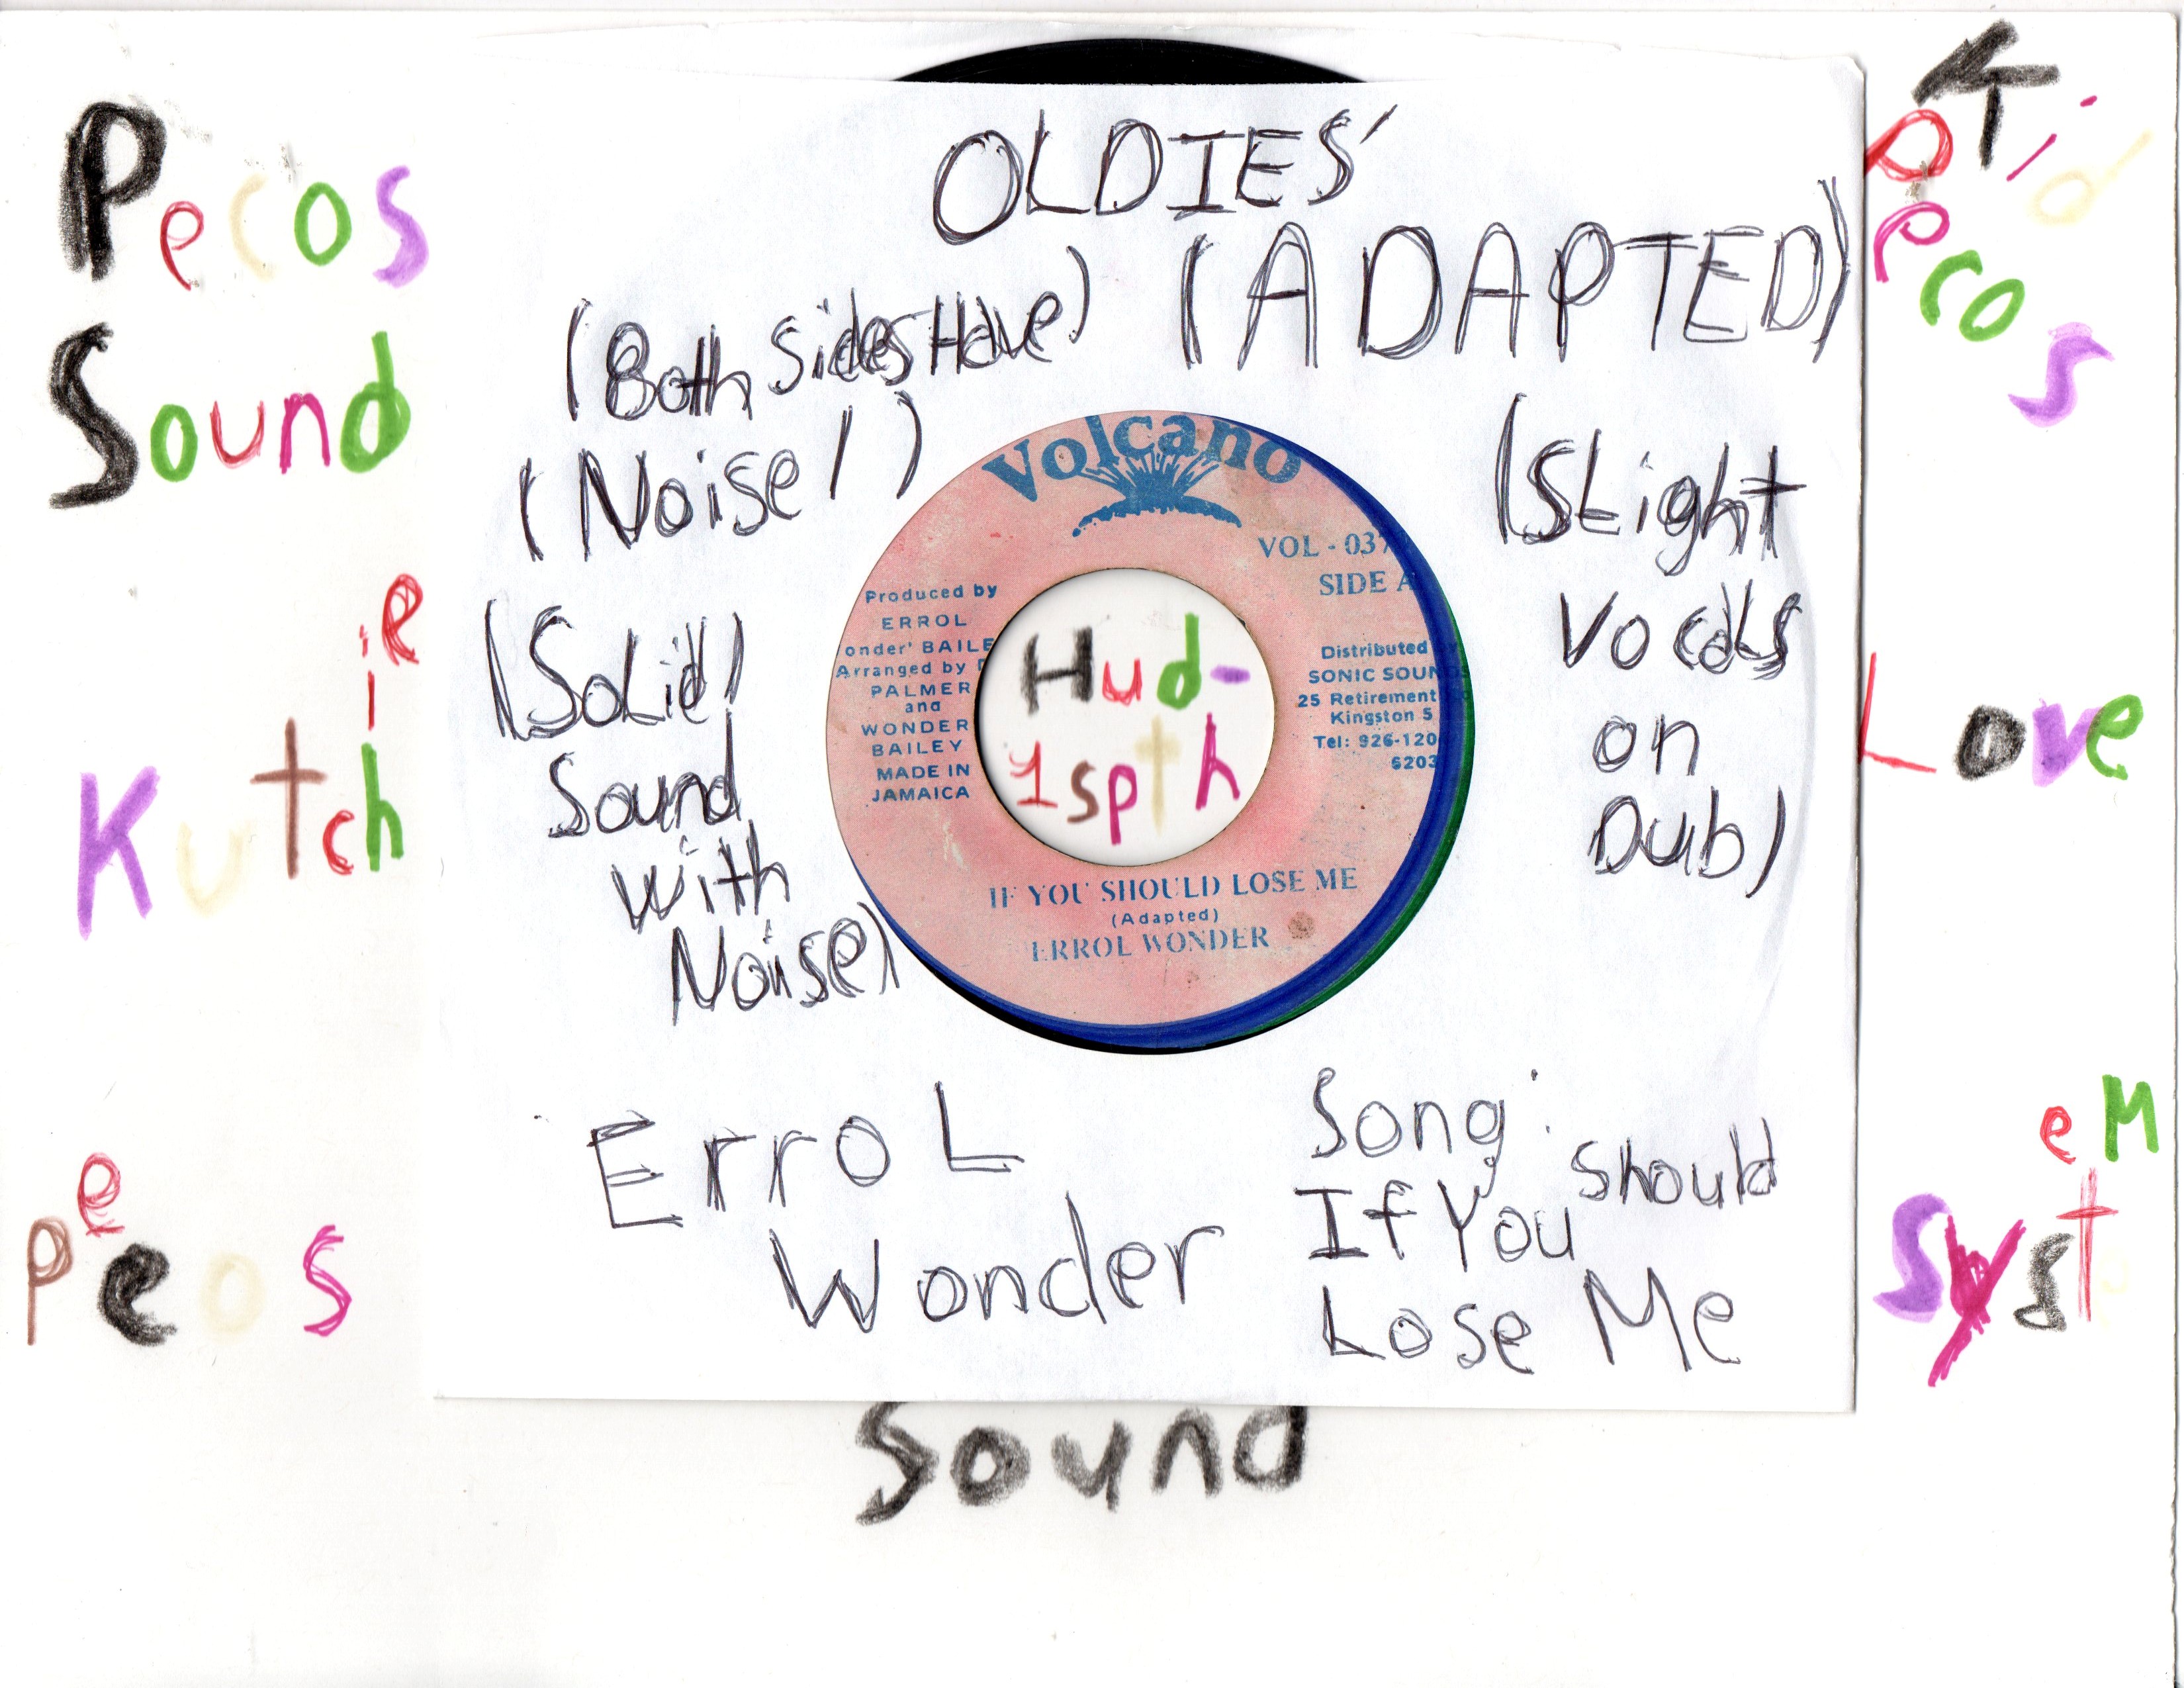 Pecos
Sound
Kutchiie
Peeos
OLDIES'
(ADAPTED)
(Both Sides Have)
(Noise!)
(Solid)
Sound
with
Noise)
(Slight
Vocals
on
Dub)
Volcano
VOL - 037
SIDE A
Produced by
ERROL
onder' BAILE
Arranged by D
PALMER
and
WONDER
BAILEY
MADE IN
JAMAICA
Distributed
SONIC SOUN
25 Retirement
Kingston 5
Tel: 926-120
6203
Hud-
1spth
IF YOU SHOULD LOSE ME
(Adapted)
ERROL WONDER
Errol
Wonder
Song:
If You Should
Lose Me
Kid
Pecos
Love
System
Sound